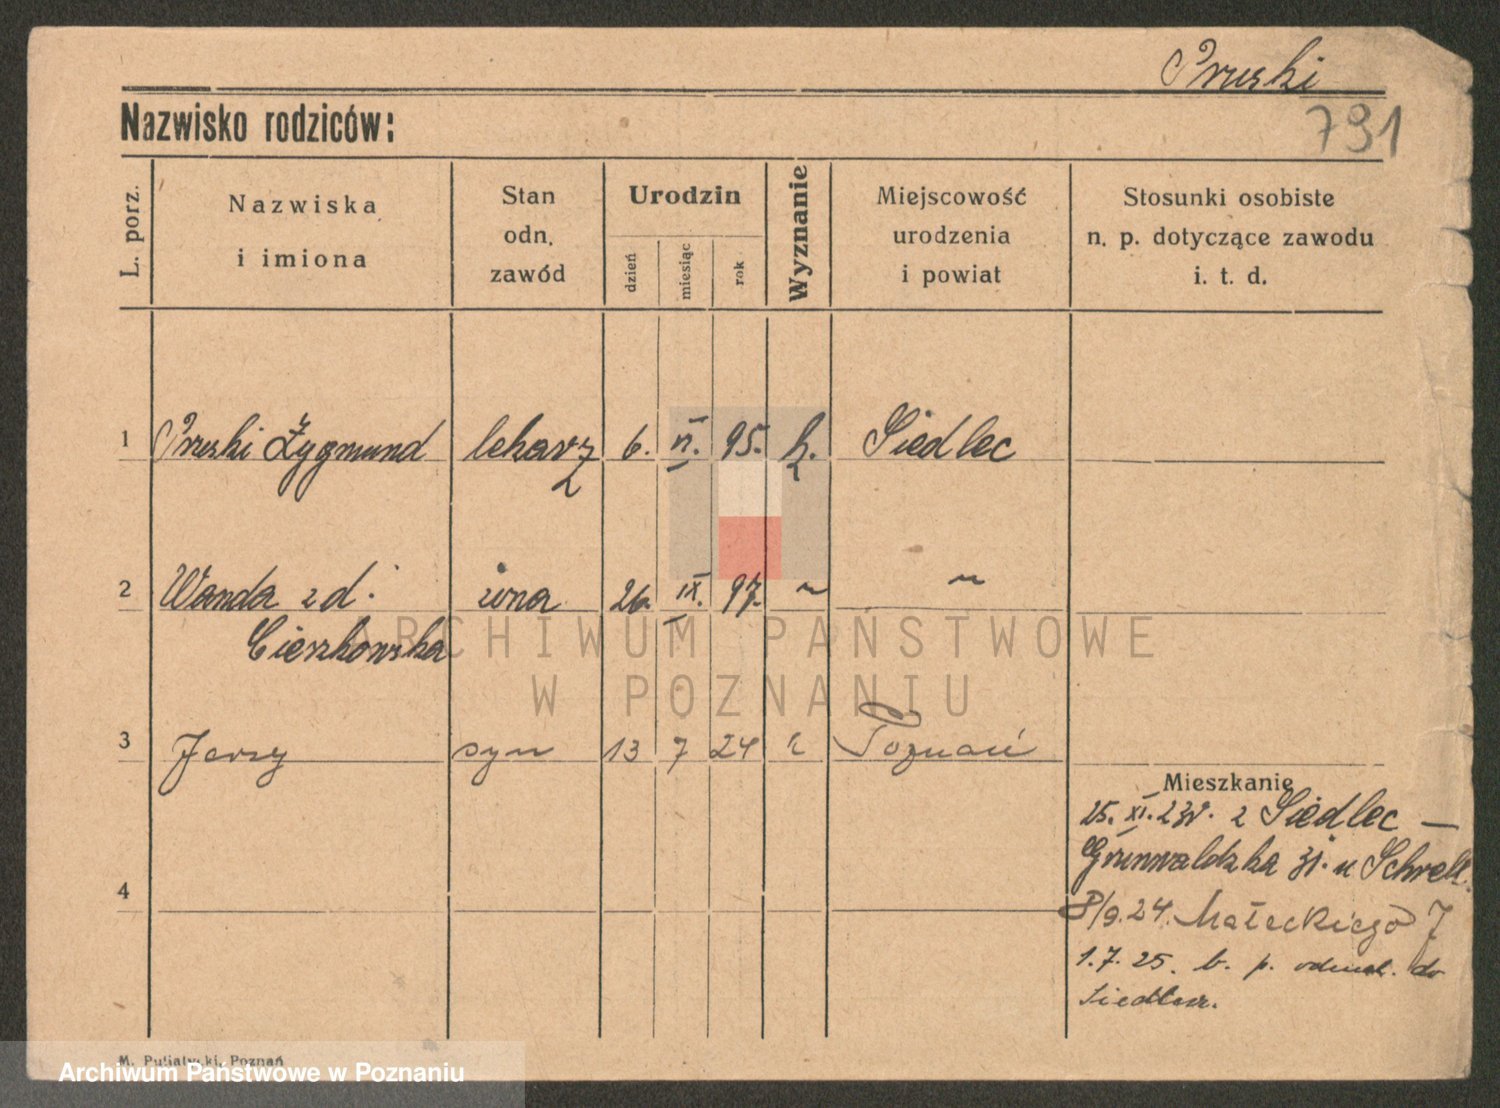 Pruski
Nazwisko rodziców:
791
L. porz.
Nazwiska
i imiona
Stan
odn.
zawód
Urodzin
dzień
miesiąc
rok
Wyznanie
Miejscowość
urodzenia
i powiat
Stosunki osobiste
n. p. dotyczące zawodu
i. t. d.
1 Pruski Zygmund lekarz 6. VI. 95. k. Siedlec
2 Wanda z d. żona 26. IX. 97. " "
Cieszkowska
3 Jerzy syn 13 7 24 k Poznań
Mieszkanie
25. XI. 23r. z Siedlec —
Grunwaldzka 31. u Schrell.
4
8/9.24. Małeckiego 7
1.7.25. b. p. odmel. do
Siedlec.
M. Putiatycki, Poznań
ARCHIWUM PAŃSTWOWE
W POZNANIU
Archiwum Państwowe w Poznaniu